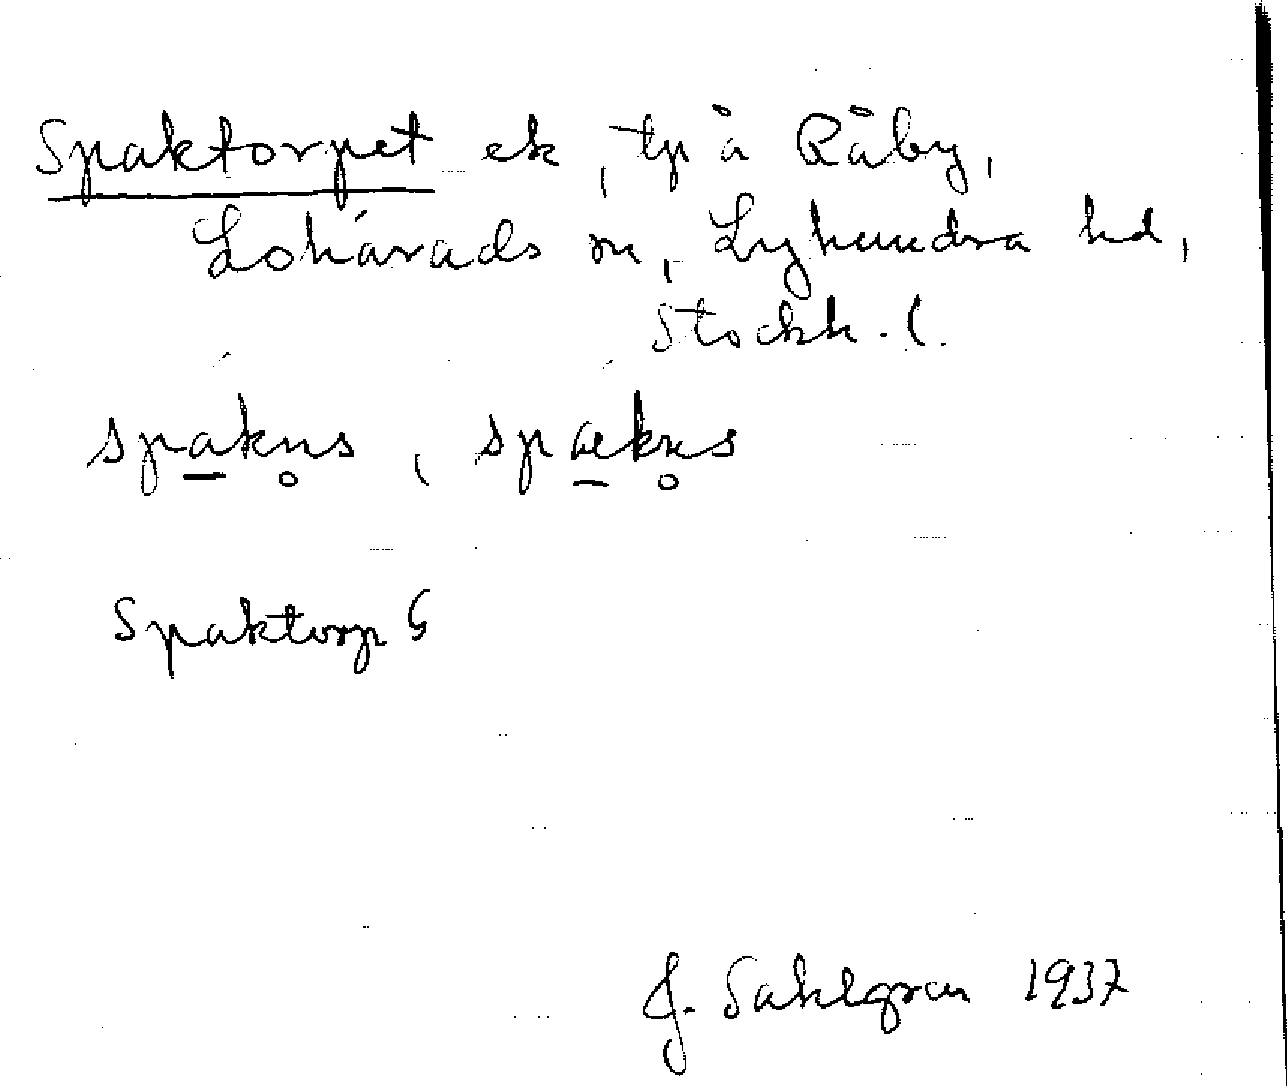 Spaktorpet ek, tp å Råby,
Lohärads sn, Lyhundra hd,
Stockh. l.
spakns, spækns
Spaktorp G
J. Sahlgren 1937